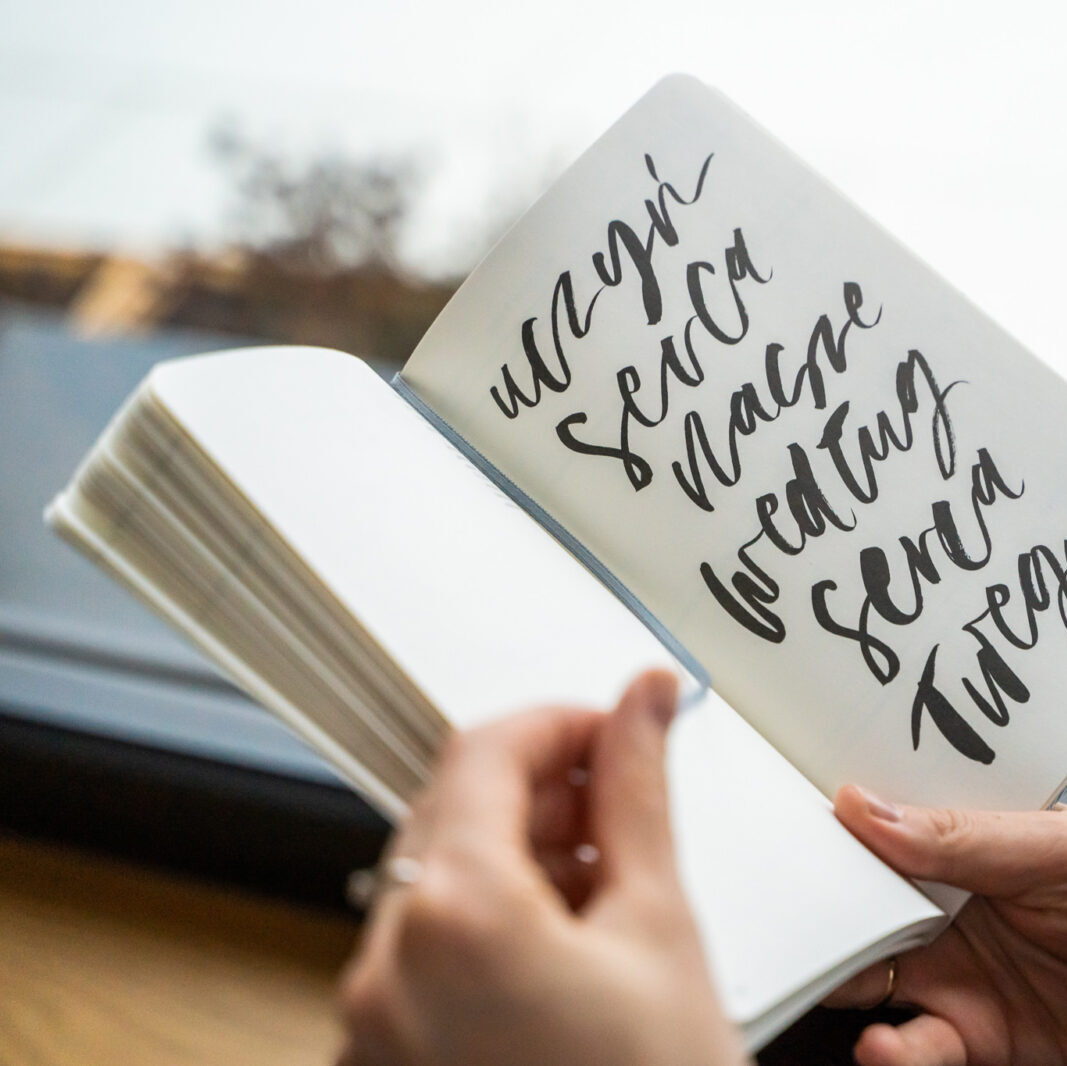 uczyń
serca
nasze
według
serca
Twego